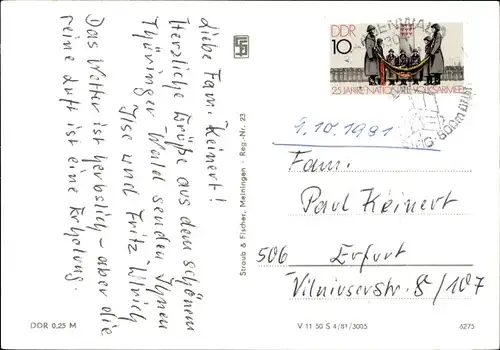 Liebe Fam. Keinert!
Herzliche Grüße aus dem schönen
Thüringer Wald senden Ihnen
Ilse und Fritz Ulrich
Das Wetter ist herbslich – aber die
reine Luft ist eine Erholung.
Straub & Fischer, Meiningen · Reg.-Nr. 23
DDR
10
25 JAHRE NATIONALE VOLKSARMEE
9.10.1981
Fam.
Paul Keinert
506 Erfurt
Vilniuserstr. 8/107
DDR 0,25 M
V 11 50 S 4/81/3005
6275